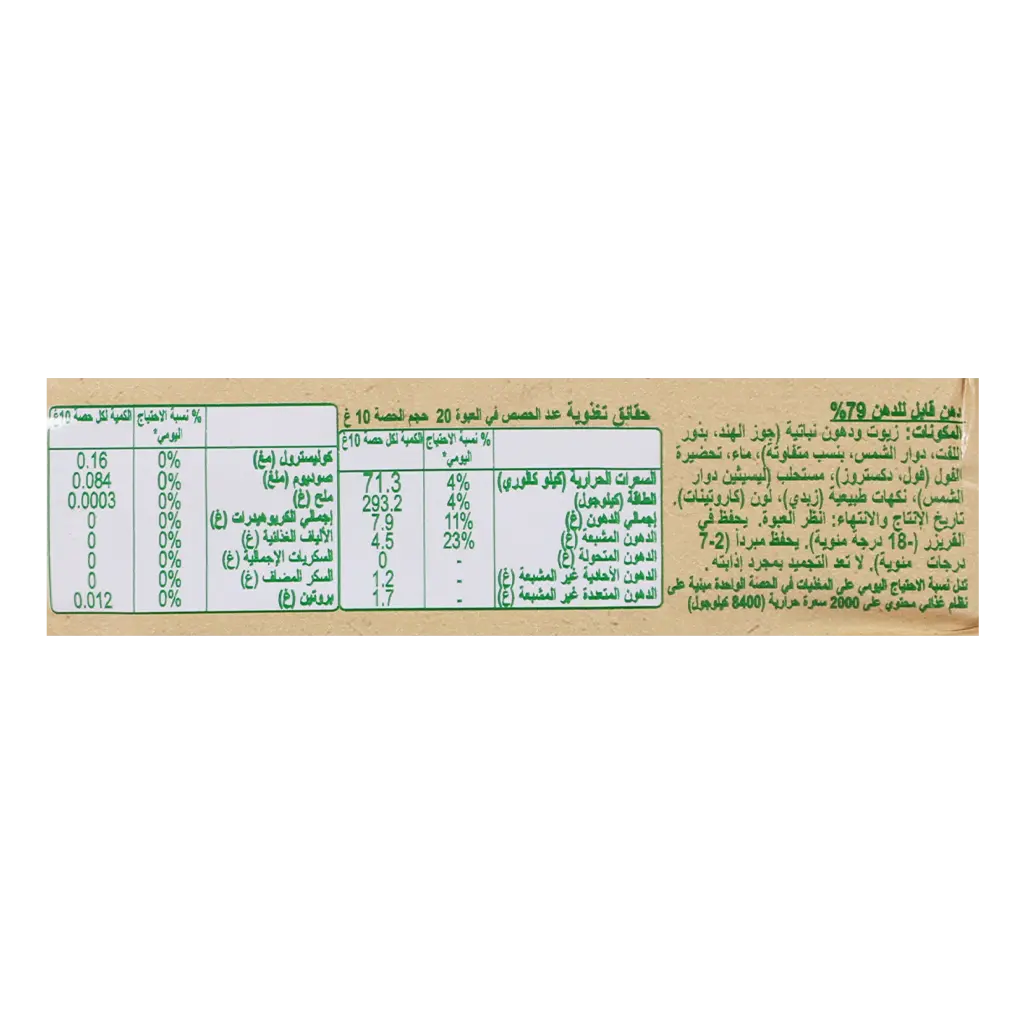 دهن قابل للدهن 79%
المكونات: زيوت ودهون نباتية (جوز الهند، بذور
اللفت، دوار الشمس، بنسب متفاوتة)، ماء، تحضيرة
الفول (فول، دكستروز)، مستحلب (ليسيثين دوار
الشمس)، نكهات طبيعية (زبدي)، لون (كاروتينات).
تاريخ الإنتاج والانتهاء: انظر العبوة. يحفظ في
الفريزر (-18 درجة مئوية). يحفظ مبرداً (2-7
درجات مئوية). لا تعد التجميد بمجرد إذابته.
تدل نسبة الاحتياج اليومي على المغذيات في الحصة الواحدة مبنية على
نظام غذائي محتوي على 2000 سعرة حرارية (8400 كيلوجول)
حقائق تغذوية عدد الحصص في العبوة 20 حجم الحصة 10 غ
% نسبة الاحتياج اليومي* الكمية لكل حصة 10غ
السعرات الحرارية (كيلو كالوري) 4% 71.3
الطاقة (كيلوجول) 4% 293.2
إجمالي الدهون (غ) 11% 7.9
الدهون المشبعة (غ) 23% 4.5
الدهون المتحولة (غ) - 0
الدهون الأحادية غير المشبعة (غ) - 1.2
الدهون المتعددة غير المشبعة (غ) - 1.7
% نسبة الاحتياج اليومي* الكمية لكل حصة 10غ
كوليسترول (مغ) 0% 0.16
صوديوم (ملغ) 0% 0.084
ملح (غ) 0% 0.0003
إجمالي الكربوهيدرات (غ) 0% 0
الألياف الغذائية (غ) 0% 0
السكريات الإجمالية (غ) 0% 0
السكر المضاف (غ) 0% 0
بروتين (غ) 0% 0.012